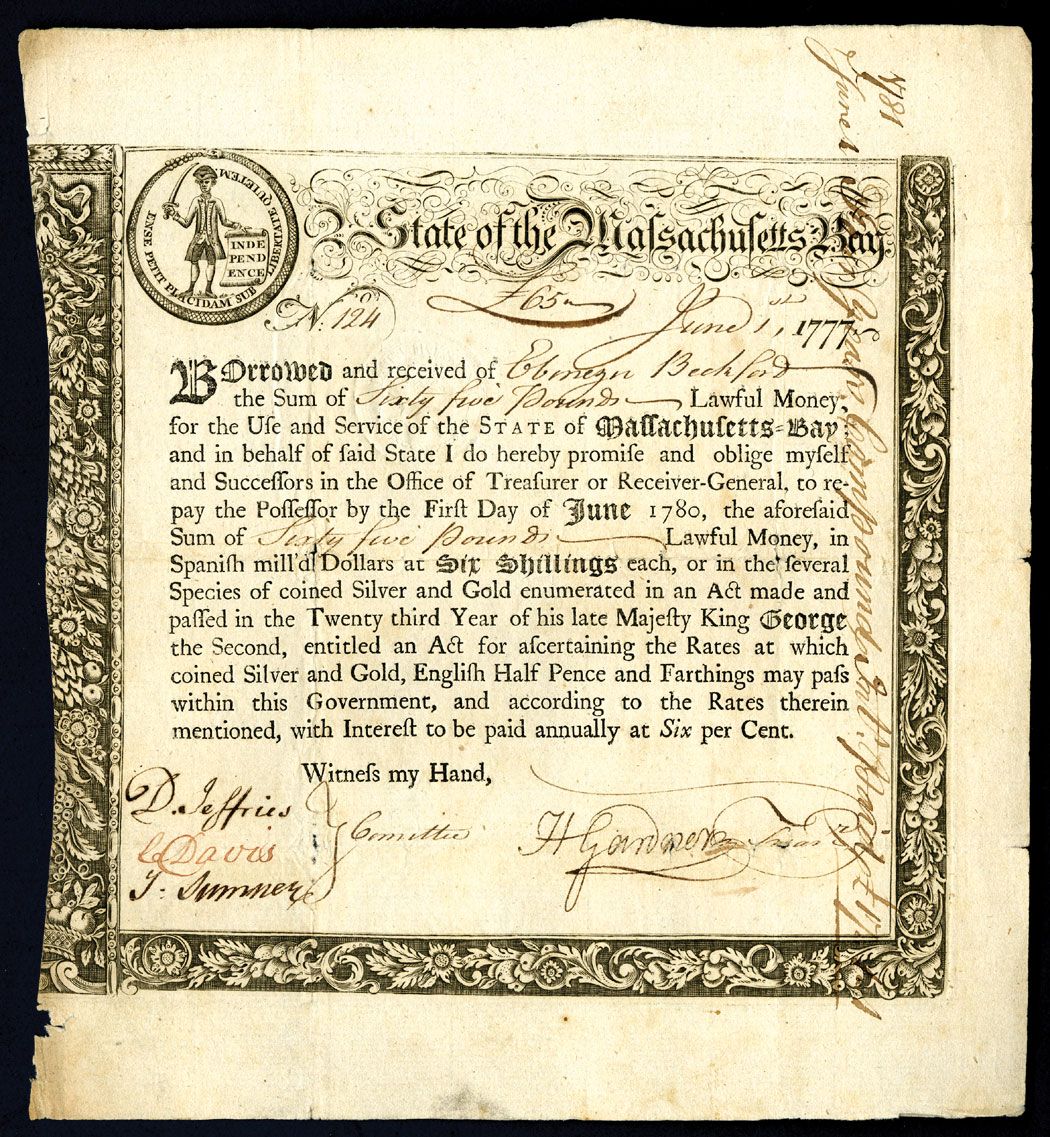 ENSE PETIT PLACIDAM SUB LIBERTATE QUIETEM
INDE
PEND
ENCE
State of the Maſsachuſetts Bay
No. 124
£65
June 1st, 1777.
BOrrowed and received of Ebenezer Beckford
the Sum of Sixty five Pounds Lawful Money,
for the Uſe and Service of the STATE of Maſſachuſetts-Bay;
and in behalf of ſaid State I do hereby promiſe and oblige myſelf
and Succeſſors in the Office of Treaſurer or Receiver-General, to re-
pay the Poſſeſſor by the Firſt Day of June 1780, the aforeſaid
Sum of Sixty five Pounds Lawful Money, in
Spaniſh mill'd Dollars at Six Shillings each, or in the ſeveral
Species of coined Silver and Gold enumerated in an Act made and
paſſed in the Twenty third Year of his late Majeſty King George
the Second, entitled an Act for aſcertaining the Rates at which
coined Silver and Gold, Engliſh Half Pence and Farthings may paſs
within this Government, and according to the Rates therein
mentioned, with Intereſt to be paid annually at Six per Cent.
Witneſs my Hand,
D. Jeffries
Davis
J. Sumner
Comittee
H Gardner
1781